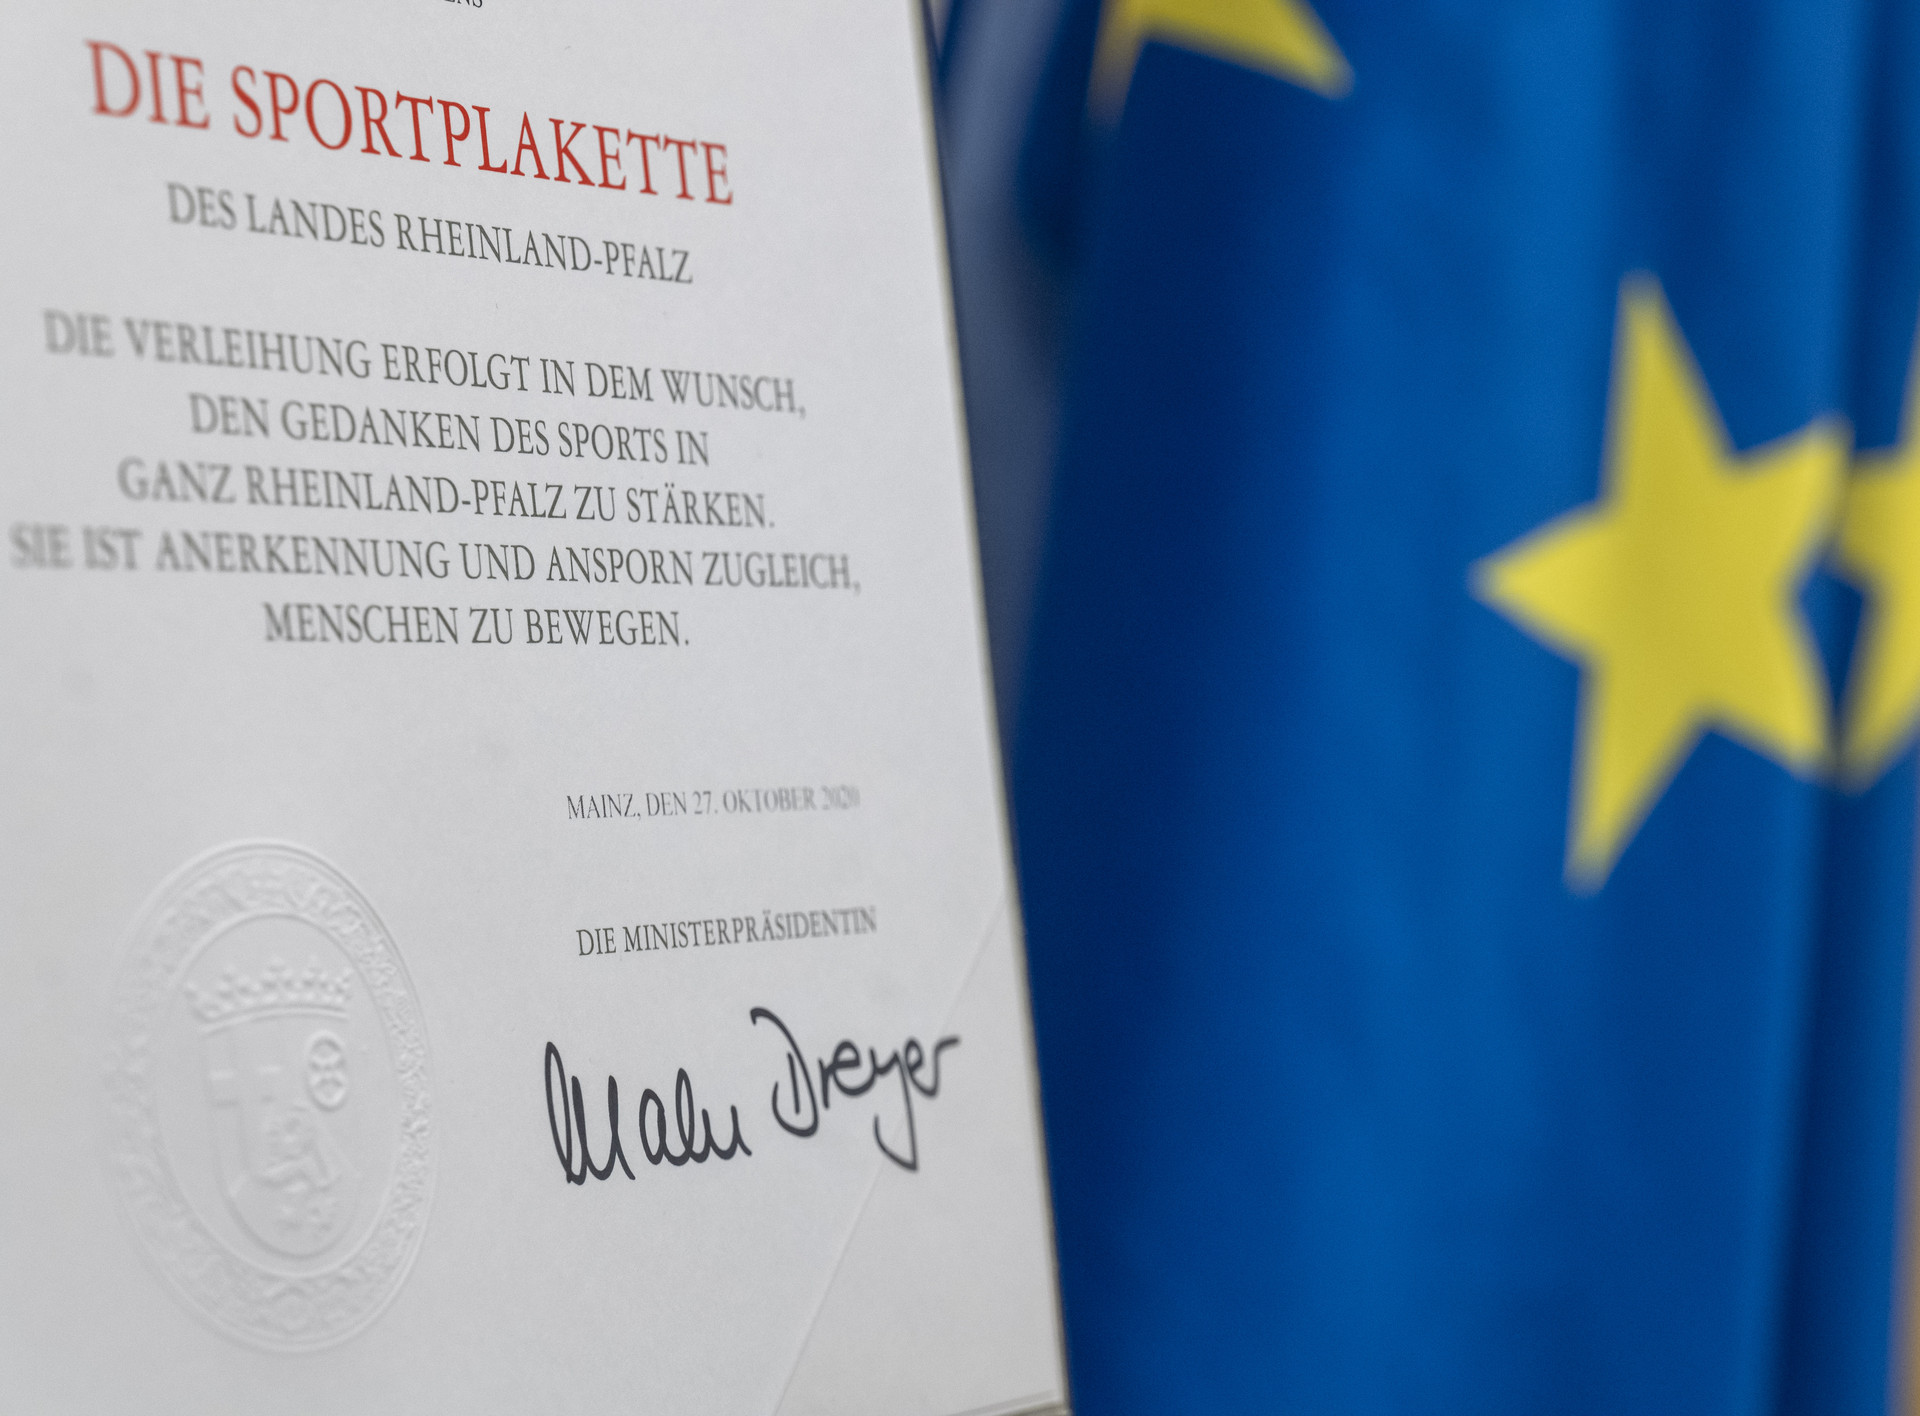 DIE SPORTPLAKETTE
DES LANDES RHEINLAND-PFALZ
DIE VERLEIHUNG ERFOLGT IN DEM WUNSCH,
DEN GEDANKEN DES SPORTS IN
GANZ RHEINLAND-PFALZ ZU STÄRKEN.
SIE IST ANERKENNUNG UND ANSPORN ZUGLEICH,
MENSCHEN ZU BEWEGEN.
MAINZ, DEN 27. OKTOBER 2020
DIE MINISTERPRÄSIDENTIN
Malu Dreyer